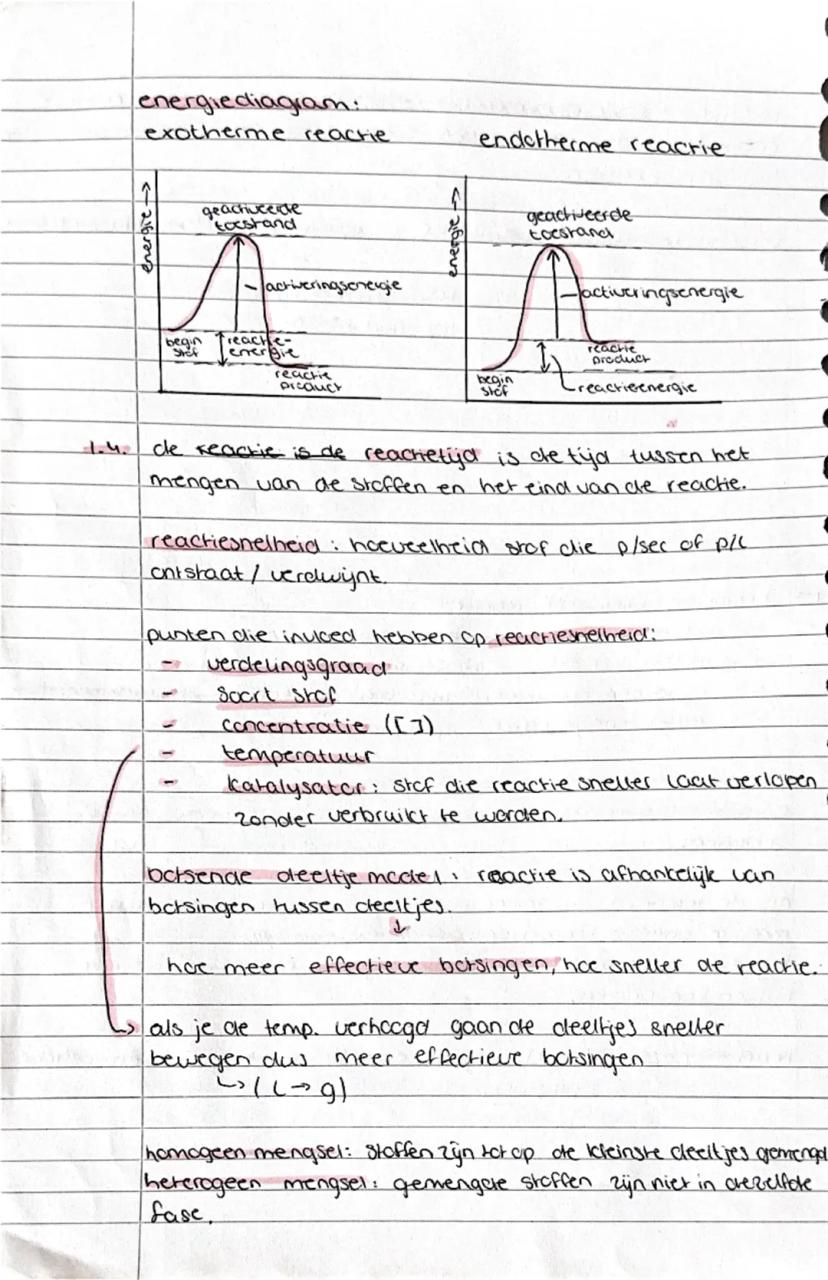 energiediagram:
exotherme reactie
endotherme reactie
energie →
geactiveerde
toestand
activeringsenergie
begin
stof
reactie-
energie
reactie
product
energie →
geactiveerde
toestand
activeringsenergie
reactie
product
begin
stof
reactieenergie
1.4. de reactie is de reactietijd is de tijd tussen het
mengen van de stoffen en het eind van de reactie.
reactiesnelheid : hoeveelheid stof die p/sec of p/L
ontstaat / verdwijnt.
punten die invloed hebben op reactiesnelheid:
- verdelingsgraad
- soort stof
- concentratie ([ ])
- temperatuur
- katalysator : stof die reactie sneller laat verlopen
zonder verbruikt te worden.
botsende deeltje model : reactie is afhankelijk van
botsingen tussen deeltjes.
↓
hoe meer effectieve botsingen, hoe sneller de reactie.
↳ als je de temp. verhoogd gaan de deeltjes sneller
bewegen dus meer effectieve botsingen
↳ (L → g)
homogeen mengsel: stoffen zijn tot op de kleinste deeltjes gemengd
heterogeen mengsel: gemengde stoffen zijn niet in dezelfde
fase.